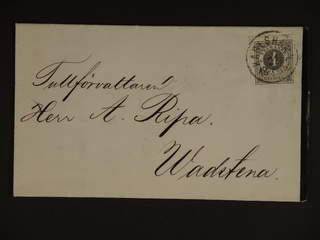 Tullförvaltaren
Herr A. Ripa.
Wadstena.
4